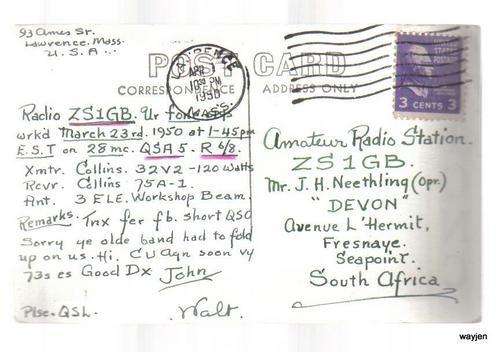 93 Ames St.
Lawrence, Mass.
U.S.A.
POST CARD
CORRESPONDENCE ADDRESS ONLY
LAWRENCE
APR 1
10 PM
1950
MASS.
3 CENTS 3
Radio ZS1GB. Ur fone sigs
wrkd March 23rd. 1950 at 1-45pm
E.S.T on 28 mc. QSA 5. R 6/8.
Xmtr. Collins. 32V2 - 120 Watts
Rcvr. Collins 75A-1.
Ant. 3 ELE. Workshop Beam.
Remarks. Tnx fer fb. short QSO
Sorry ye olde band had to fold
up on us. Hi. C U Agn soon vy
73s es Good Dx John
Plse. QSL. Walt.
Amateur Radio Station.
ZS1GB.
Mr. J. H. Neethling (Opr.)
"DEVON"
Avenue L'Hermit,
Fresnaye.
Seapoint.
South Africa
wayjen